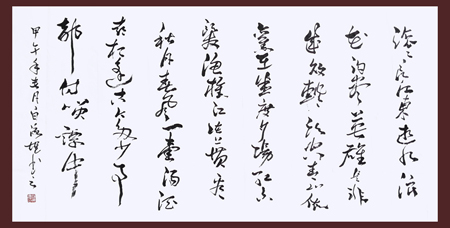 滚滚长江东逝水浪
花淘尽英雄是非
成败转头空青山依
旧在几度夕阳红白
发渔樵江渚上惯看
秋月春风一壶浊酒
喜相逢古今多少事
都付笑谈中
甲午年春月白